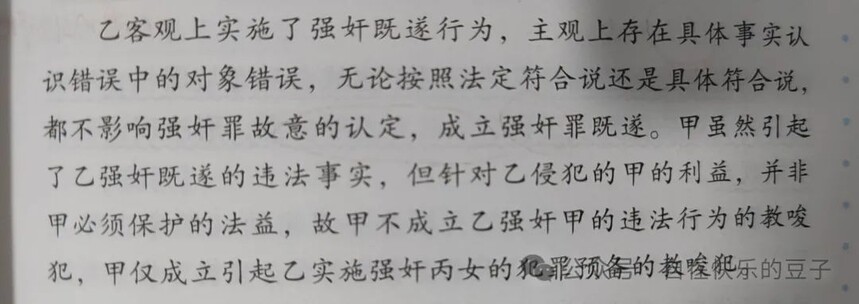 乙客观上实施了强奸既遂行为，主观上存在具体事实认
识错误中的对象错误，无论按照法定符合说还是具体符合说，
都不影响强奸罪故意的认定，成立强奸罪既遂。甲虽然引起
了乙强奸既遂的违法事实，但针对乙侵犯的甲的利益，并非
甲必须保护的法益，故甲不成立乙强奸甲的违法行为的教唆
犯，甲仅成立引起乙实施强奸丙女的犯罪预备的教唆犯
乐的豆子